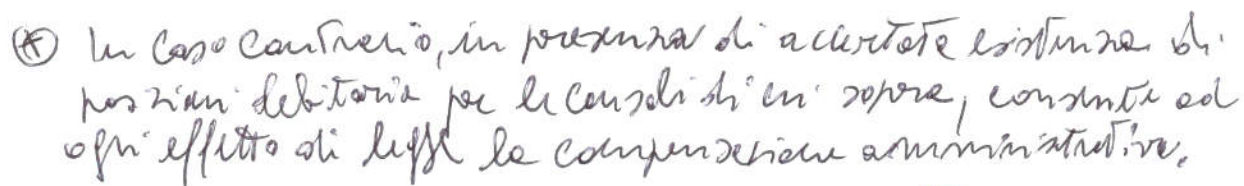 (*) In caso contrario, in presenza di accertata esistenza di
posizioni debitoria per le causali di cui sopra, consente ad
ogni effetto di legge la compensazione amministrativa.